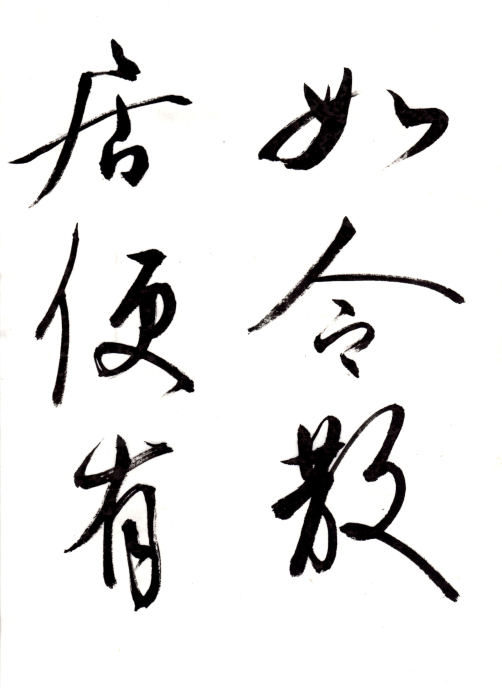 如令散
居便有